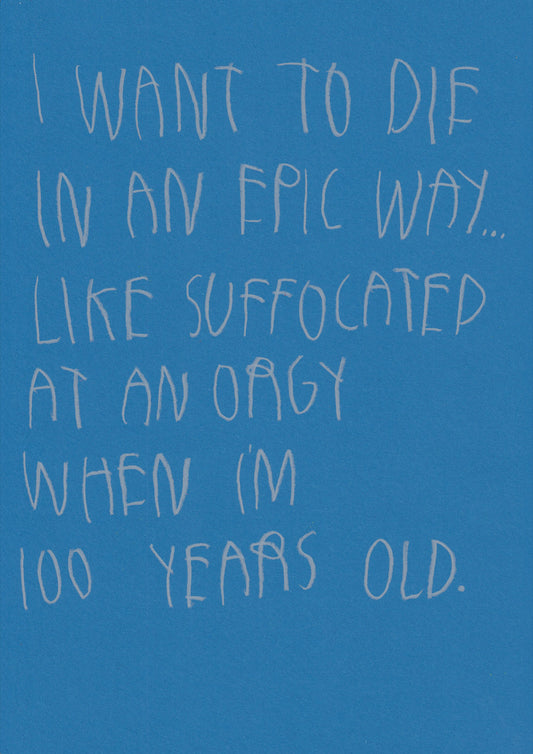 I WANT TO DIE
IN AN EPIC WAY...
LIKE SUFFOCATED
AT AN ORGY
WHEN I'M
100 YEARS OLD.